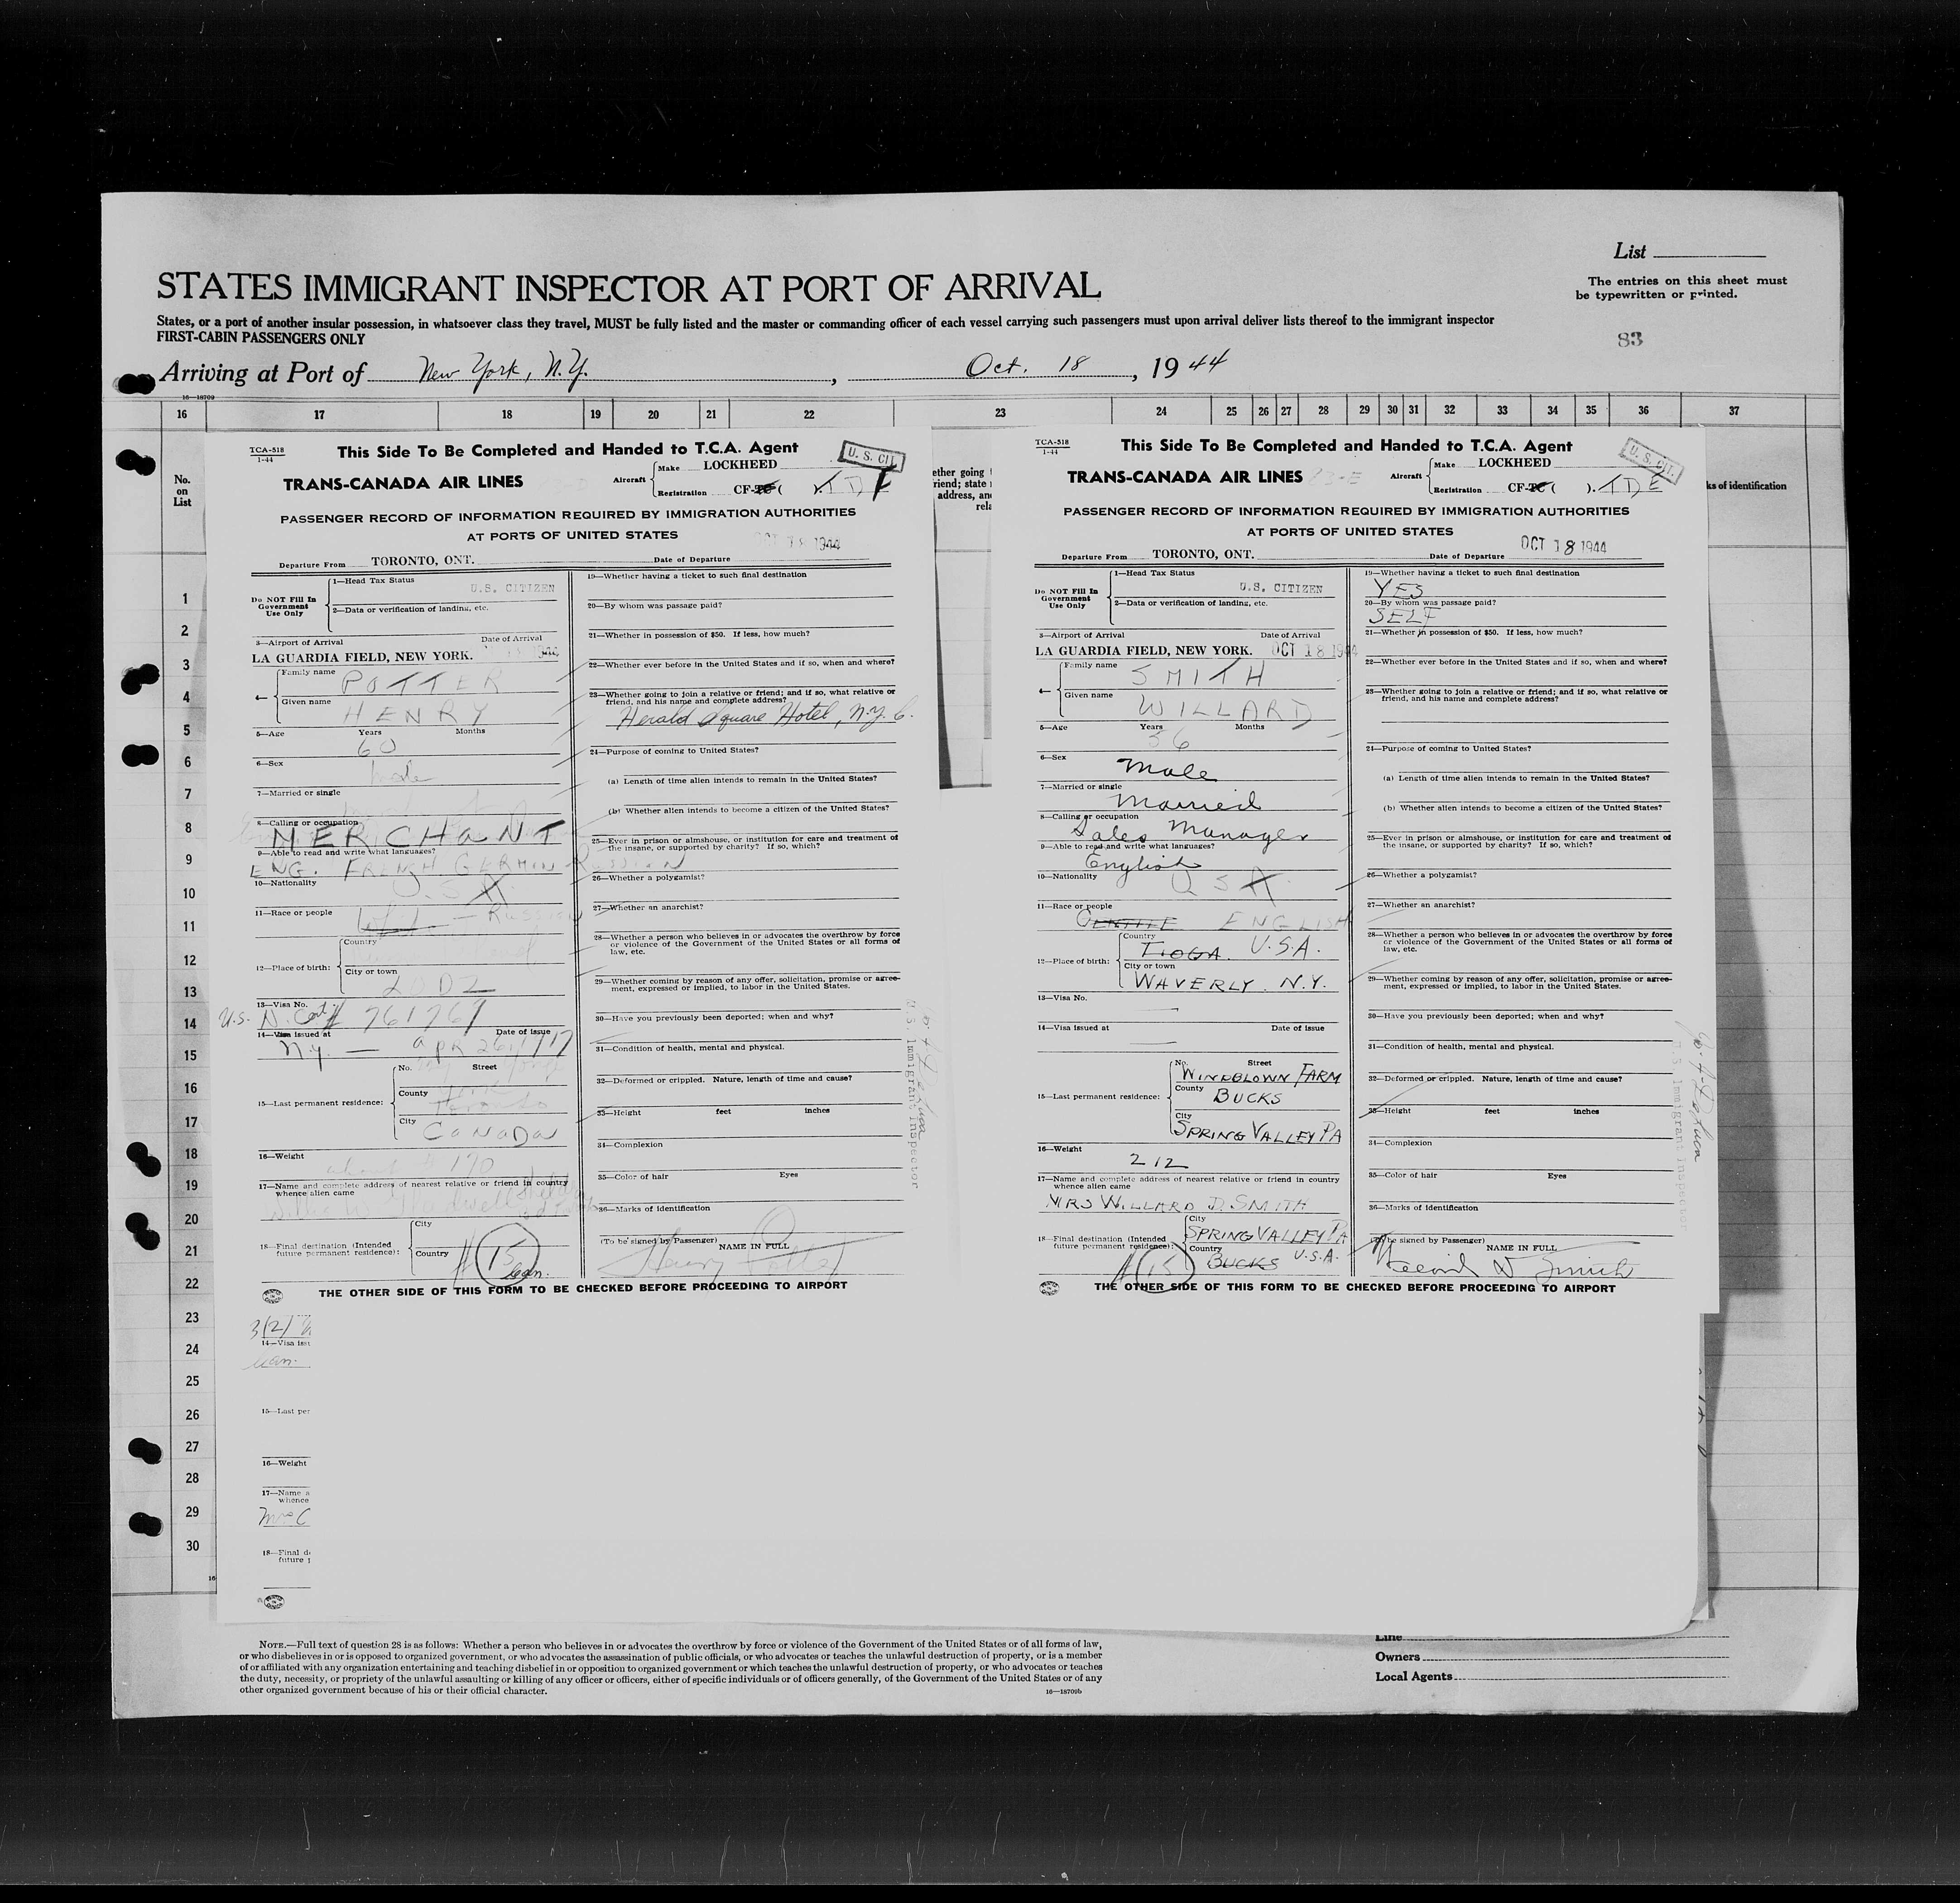 List
The entries on this sheet must
be typewritten or printed.
STATES IMMIGRANT INSPECTOR AT PORT OF ARRIVAL
States, or a port of another insular possession, in whatsoever class they travel, MUST be fully listed and the master or commanding officer of each vessel carrying such passengers must upon arrival deliver lists thereof to the immigrant inspector
FIRST-CABIN PASSENGERS ONLY
83
Arriving at Port of New York, N.Y., Oct. 18, 1944
16—18709
16 17 18 19 20 21 22 23 24 25 26 27 28 29 30 31 32 33 34 35 36 37
No.
on
List
ks of identification
1
2
3
4
5
6
7
8
9
10
11
12
13
14
15
16
17
18
19
20
21
22
23
24
25
26
27
28
29
30
TCA-518
1-44
This Side To Be Completed and Handed to T.C.A. Agent
U. S. CIT
TRANS-CANADA AIR LINES
Aircraft
Make LOCKHEED
Registration CF-TC ( ). TDE
PASSENGER RECORD OF INFORMATION REQUIRED BY IMMIGRATION AUTHORITIES
AT PORTS OF UNITED STATES
Departure From TORONTO, ONT. Date of Departure OCT 18 1944
Do NOT Fill In
Government
Use Only
1—Head Tax Status
U.S. CITIZEN
2—Data or verification of landing, etc.
3—Airport of Arrival Date of Arrival
LA GUARDIA FIELD, NEW YORK. 1944
4— Family name POTTER
Given name HENRY
5—Age Years Months
60
6—Sex male
7—Married or single
8—Calling or occupation
MERCHANT
9—Able to read and write what languages?
ENG. FRENCH GERMAN RUSSIAN
10—Nationality U.S.A.
11—Race or people — RUSSIAN
12—Place of birth:
Country
City or town
LODZ
13—Visa No.
U.S. N. Cert # 761761
14—Visa issued at Date of issue
N.Y. — Apr 26, 1917
15—Last permanent residence:
No. Street
County Toronto
City CANADA
16—Weight about # 170
17—Name and complete address of nearest relative or friend in country
whence alien came
18—Final destination (Intended
future permanent residence):
City
Country
# 15 Can.
19—Whether having a ticket to such final destination
20—By whom was passage paid?
21—Whether in possession of $50. If less, how much?
22—Whether ever before in the United States and if so, when and where?
23—Whether going to join a relative or friend; and if so, what relative or
friend, and his name and complete address?
Herald Square Hotel, N.Y.C.
24—Purpose of coming to United States?
(a) Length of time alien intends to remain in the United States?
(b) Whether alien intends to become a citizen of the United States?
25—Ever in prison or almshouse, or institution for care and treatment of
the insane, or supported by charity? If so, which?
26—Whether a polygamist?
27—Whether an anarchist?
28—Whether a person who believes in or advocates the overthrow by force
or violence of the Government of the United States or all forms of
law, etc.
29—Whether coming by reason of any offer, solicitation, promise or agree-
ment, expressed or implied, to labor in the United States.
30—Have you previously been deported; when and why?
31—Condition of health, mental and physical.
32—Deformed or crippled. Nature, length of time and cause?
33—Height feet inches
34—Complexion
35—Color of hair Eyes
36—Marks of identification
(To be signed by Passenger) NAME IN FULL
Henry Potter
U.S. Immigrant Inspector
THE OTHER SIDE OF THIS FORM TO BE CHECKED BEFORE PROCEEDING TO AIRPORT
ether going
riend; state
address, and
rela
TCA-518
1-44
This Side To Be Completed and Handed to T.C.A. Agent
U. S. CIT.
TRANS-CANADA AIR LINES
Aircraft
Make LOCKHEED
Registration CF-TC ( ). TDE
PASSENGER RECORD OF INFORMATION REQUIRED BY IMMIGRATION AUTHORITIES
AT PORTS OF UNITED STATES
Departure From TORONTO, ONT. Date of Departure OCT 18 1944
Do NOT Fill In
Government
Use Only
1—Head Tax Status
U.S. CITIZEN
2—Data or verification of landing, etc.
3—Airport of Arrival Date of Arrival
LA GUARDIA FIELD, NEW YORK. OCT 18 1944
4— Family name SMITH
Given name WILLARD
5—Age Years Months
56
6—Sex Male
7—Married or single
Married
8—Calling or occupation
Sales Manager
9—Able to read and write what languages?
English
10—Nationality USA
11—Race or people
GENTILE ENGLISH
12—Place of birth:
Country
TIOGA. U.S.A.
City or town
WAVERLY. N.Y.
13—Visa No.
14—Visa issued at Date of issue
15—Last permanent residence:
No. Street
WINDBLOWN FARM
County
BUCKS
City
SPRING VALLEY PA
16—Weight
212
17—Name and complete address of nearest relative or friend in country
whence alien came
MRS WILLARD D. SMITH
18—Final destination (Intended
future permanent residence):
City
SPRING VALLEY PA
Country
BUCKS U.S.A.
# 15
19—Whether having a ticket to such final destination
YES
20—By whom was passage paid?
SELF
21—Whether in possession of $50. If less, how much?
22—Whether ever before in the United States and if so, when and where?
23—Whether going to join a relative or friend; and if so, what relative or
friend, and his name and complete address?
24—Purpose of coming to United States?
(a) Length of time alien intends to remain in the United States?
(b) Whether alien intends to become a citizen of the United States?
25—Ever in prison or almshouse, or institution for care and treatment of
the insane, or supported by charity? If so, which?
26—Whether a polygamist?
27—Whether an anarchist?
28—Whether a person who believes in or advocates the overthrow by force
or violence of the Government of the United States or all forms of
law, etc.
29—Whether coming by reason of any offer, solicitation, promise or agree-
ment, expressed or implied, to labor in the United States.
30—Have you previously been deported; when and why?
31—Condition of health, mental and physical.
32—Deformed or crippled. Nature, length of time and cause?
33—Height feet inches
34—Complexion
35—Color of hair Eyes
36—Marks of identification
(To be signed by Passenger) NAME IN FULL
Willard D Smith
U.S. Immigrant Inspector
THE OTHER SIDE OF THIS FORM TO BE CHECKED BEFORE PROCEEDING TO AIRPORT
3(2)
14—Visa iss
Can.
15—Last per
16—Weight
17—Name a
whence
Mrs C
18—Final d
future p
16
NOTE.—Full text of question 28 is as follows: Whether a person who believes in or advocates the overthrow by force or violence of the Government of the United States or of all forms of law,
or who disbelieves in or is opposed to organized government, or who advocates the assassination of public officials, or who advocates or teaches the unlawful destruction of property, or is a member
of or affiliated with any organization entertaining and teaching disbelief in or opposition to organized government or which teaches the unlawful destruction of property, or who advocates or teaches
the duty, necessity, or propriety of the unlawful assaulting or killing of any officer or officers, either of specific individuals or of officers generally, of the Government of the United States or of any
other organized government because of his or their official character.
16—18709b
Line
Owners
Local Agents